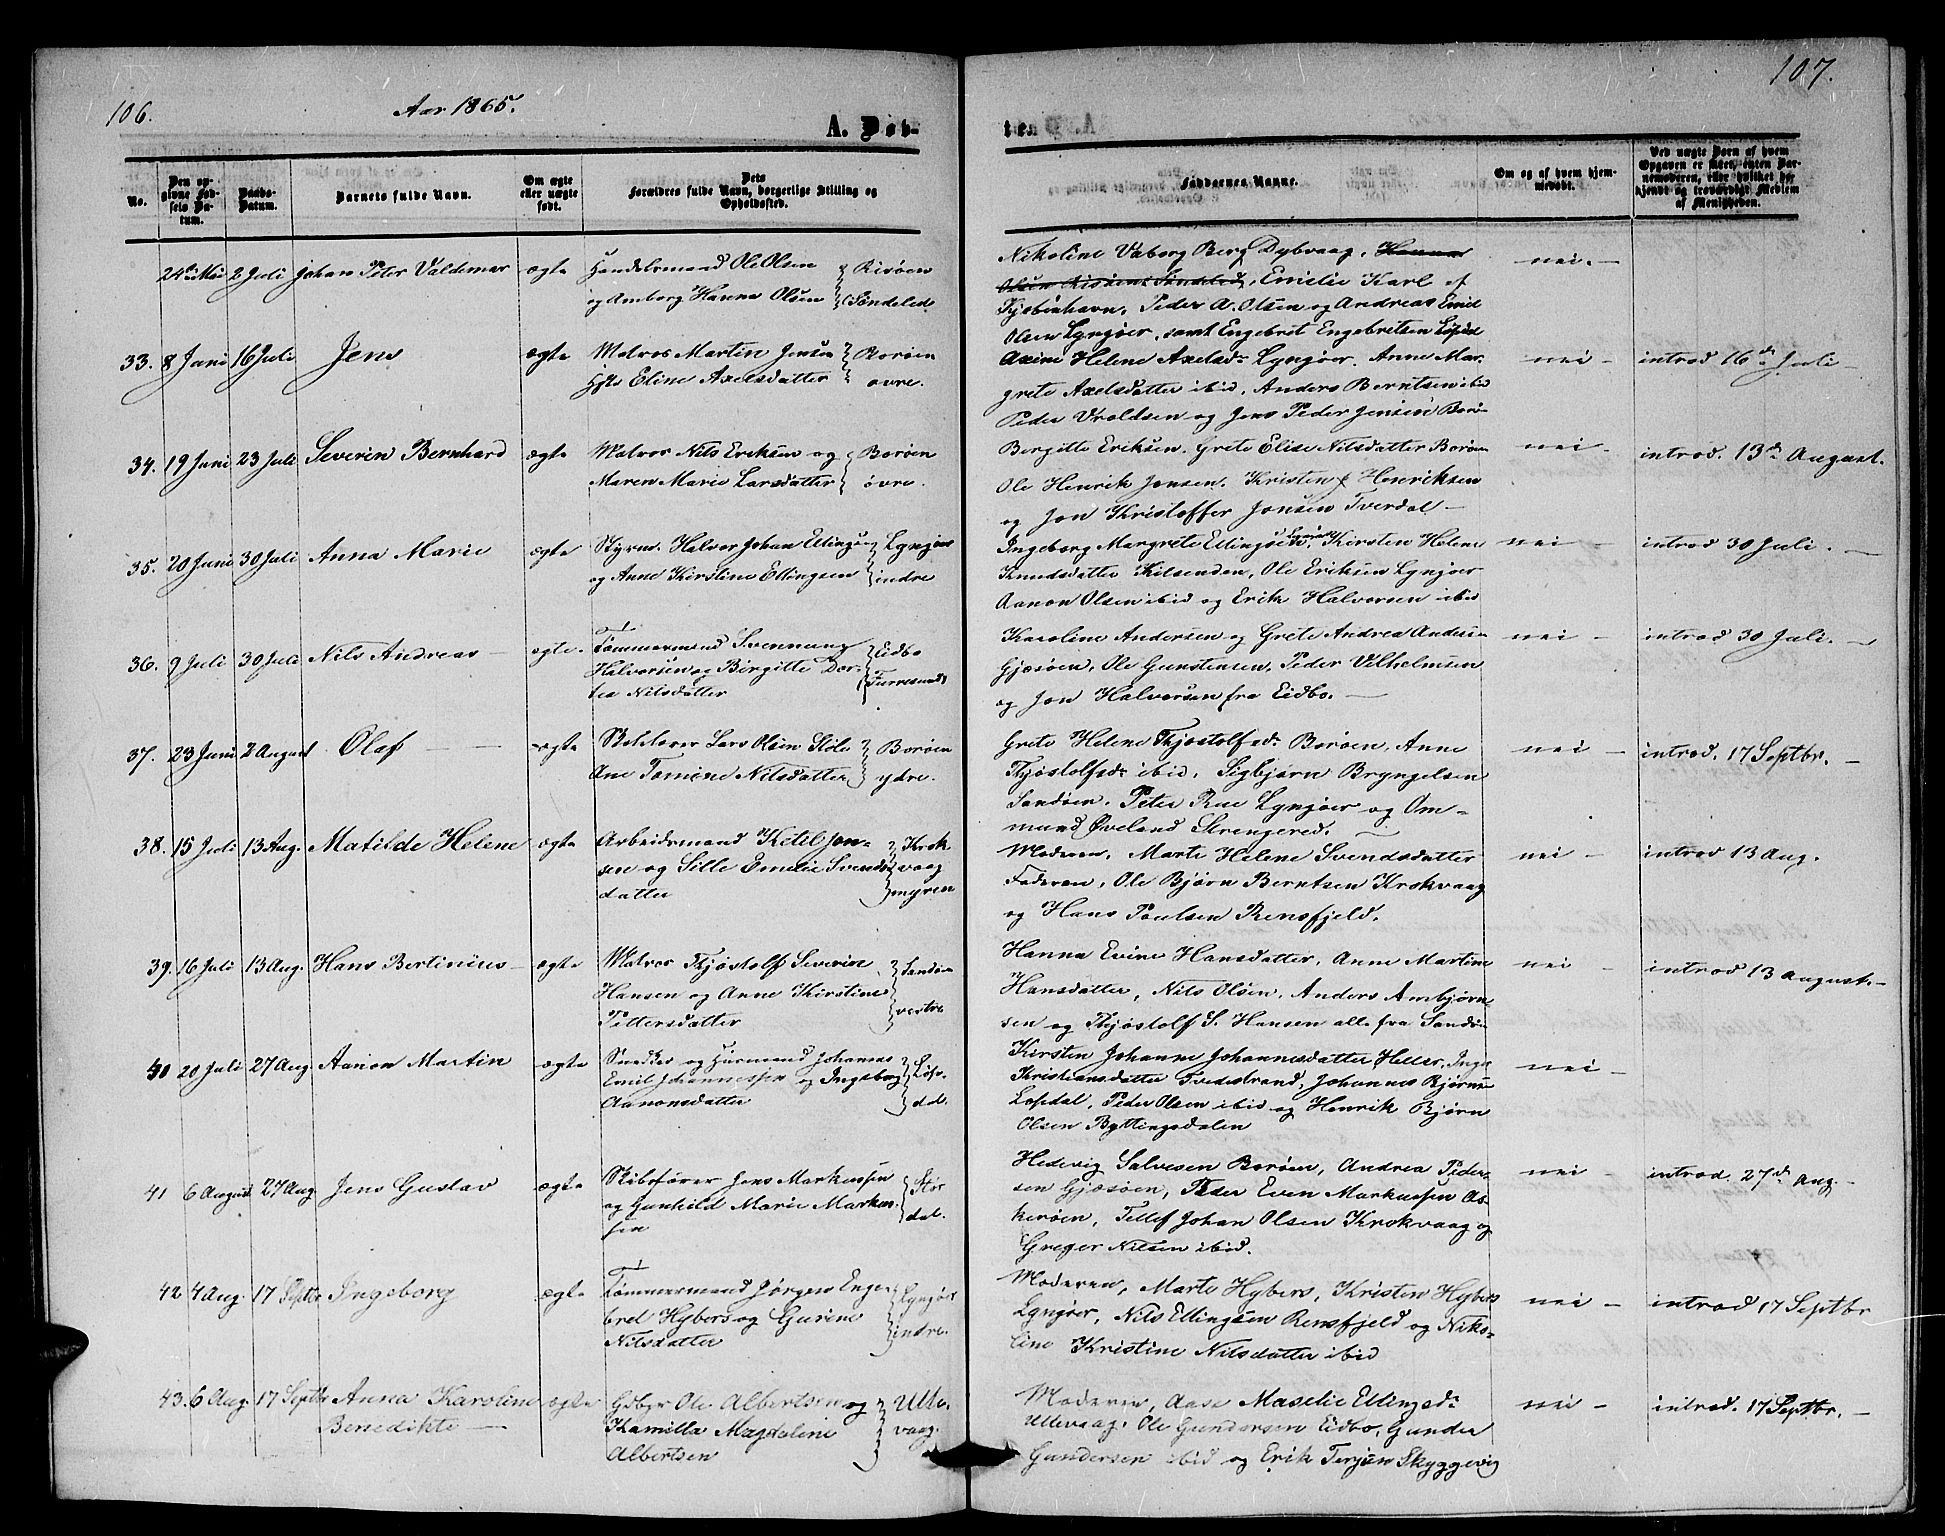 106.
Aar 1865.
A. Døb-
No.
Den op-
givne Fød-
sels Da-
tum.
Daabs-
Datum.
Barnets fulde Navn.
Om ægte
eller uægte
født.
Dets
Forældres fulde Navn, borgerlige Stilling og
Opholdssted.
24de Mai 2 Juli Johan Peter Valdemar ægte Handelsmand Ole Olsen Risøen
og Amborg Hanna Olsen Søndeled
33. 8 Juni 16 Juli Jens ægte Matros Martin Jensen Borøen
Eline Axelsdatter øvre.
34. 19 Juni 23 Juli Severin Bernhard ægte Matros Nils Eriksen og Borøen
Maren Marie Larsdatter øvre.
35. 20 Juni 30 Juli Anna Marie ægte Styrm. Halvor Johan Ellingsen Lyngøer
og Anne Kirstine Ellingsen indre
36. 9 Juli 30 Juli Nils Andreas — ægte. Tømmermand Svennung Eidbo
Halvorsen og Birgitte Dor-
tea Nilsdatter
37. 23 Juni 2 August Olaf — ægte Lars Olsen Borøen
Ane Tomine Nilsdatter ydre.
38. 15 Juli 13 Aug. Matilde Helene ægte Arbeidsmand Ketil Jon- Krok
sen og Sille Emelie Svends vaag
datter myren
39. 16 Juli 13 Aug. Hans Bertinius — ægte Matros Thjøstolf Severin Sandøen
Hansen og Anne Kirstine vestre
Pettersdatter
40 20 Juli 27 Aug. Aanon Martin ægte Snedker og Huusmand Johannes Løvs-
Emil Johannessen og Ingeborg dal.
Aanonsdatter
41 6 August 27 Aug Jens Gustav ægte Skibsfører Jens Markussen Stør
og Gunhild Marie Markus- dal.
sen
42 4 Aug. 17 Septbr Ingeborg ægte Tømmermand Jørgen Enge- Lyngøer
bret Hybers og Gurine indre.
Nilsdatter
43. 6 Aug. 17 Septbr Anna Karoline ægte Gdbgr Ole Albertsen og Ulle-
Benedikte — Kamilla Magdaline vaag.
Albertsen
107.
te.
Faddernes Navne.
Om og af hvem hjem-
medøbt.
Ved uægte Børn af hvem
Opgaven er sket, enten Bar-
nemoderen, eller hvilket be-
kjendt og troværdigt Medlem
af Menigheden.
Nikoline Vaborg Berg Dybvaag, Hanna
Olsen Risøen Søndeled, Emilie Karl af nei. —
Kjøbenhavn, Peder A. Olsen og Andreas Emil
Olsen Lyngøer, samt Engebret Engebretsen
Axine Helene Axelsdr Lyngøer. Anne Mar- nei — introd 16de Juli —
grete Axelsdatter ibid, Anders Berntsen ibid
Peder Vroldsen og Jens Peder Jensen Borø-
Borgitte Eriksen. Grete Elise Nilsdatter Borøen nei — introd. 13de August.
Ole Henrik Jensen. Kristen Henriksen
og Jon Kristoffer Jonsen Tverdal —
Ingeborg Margrete Ellingsen Lyngøer, Kirsten Helene nei — introd 30 Juli. —
Knudsdatter Kilsenden, Ole Eriksen Lyngøer
Aanon Olsen ibid og Erik Halvorsen ibid
Karoline Andersen og Grete Andrea Anders- nei — introd 30 Juli. —
Gjæsøen, Ole Gunstensen, Peder Vilhelmsen
og Jon Halvorsen fra Eidbo. —
Grete Helene Thjøstolfsdr Borøen, Anne nei — introd. 17 Septbr. —
Thjøstolfsdr ibid, Sigbjørn Bryngelsen
Sandøen. Peter Rue Lyngøer og Om-
mund Øveland Strengered. —
Moderen, Marte Helene Svendsdatter nei — introd 13 Aug.
Faderen, Ole Bjørn Berntsen Krokvaag
og Hans Poulsen Rensfjeld.
Hanna Evine Hansdatter, Anne Martine nei — introd 13 August. —
Hansdatter, Nils Olsen, Anders Ambjørn-
sen og Thjøstolf S. Hansen alle fra Sandø-
Kirsten Johanne Johannesdatter Heller, Inge nei —
Kristiansdatter Tvedestrand, Johannes Bjørn-
Løvdal, Peder Olsen ibid og Henrik Bjørn
Olsen Byttingsdalen
Hedevig Salvesen Borøen, Andrea Peder- nei — introd 27de Aug. —
sen Gjæsøen, Peder Even Markussen As-
kerøen, Tellef Johan Olsen Krokvaag og
Greger Nilsen ibid.
Moderen, Marte Hybers, Kristen Hybers nei — introd 17 Septbr
Lyngøer, Nils Ellingsen Rensfjeld og Niko-
line Kristine Nilsdatter ibid
Moderen, Aase Maselie Ellingsdr nei — introd. 17 Septbr. —
Ullevaag. Ole Gundersen Eidbo, Gunder
Gundersen ibid og Erik Terjesen Skyggevig